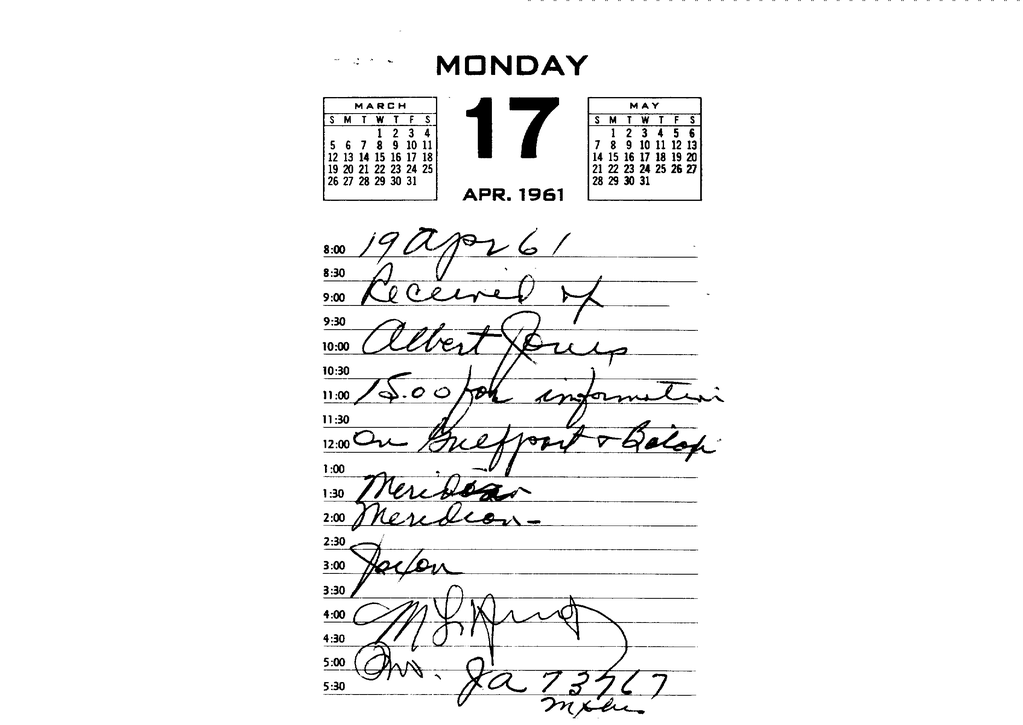 MONDAY
17
APR. 1961
MARCH
S M T W T F S
1 2 3 4
5 6 7 8 9 10 11
12 13 14 15 16 17 18
19 20 21 22 23 24 25
26 27 28 29 30 31
MAY
S M T W T F S
1 2 3 4 5 6
7 8 9 10 11 12 13
14 15 16 17 18 19 20
21 22 23 24 25 26 27
28 29 30 31
8:00 19 Apr 61
8:30
9:00 Received of
9:30
10:00 Albert Jones
10:30
11:00 15.00 for information
11:30
12:00 on Gulfport &
1:00
1:30
2:00 Meridian-
2:30
3:00
3:30
4:00 M L
4:30
5:00
5:30 Ja 73767